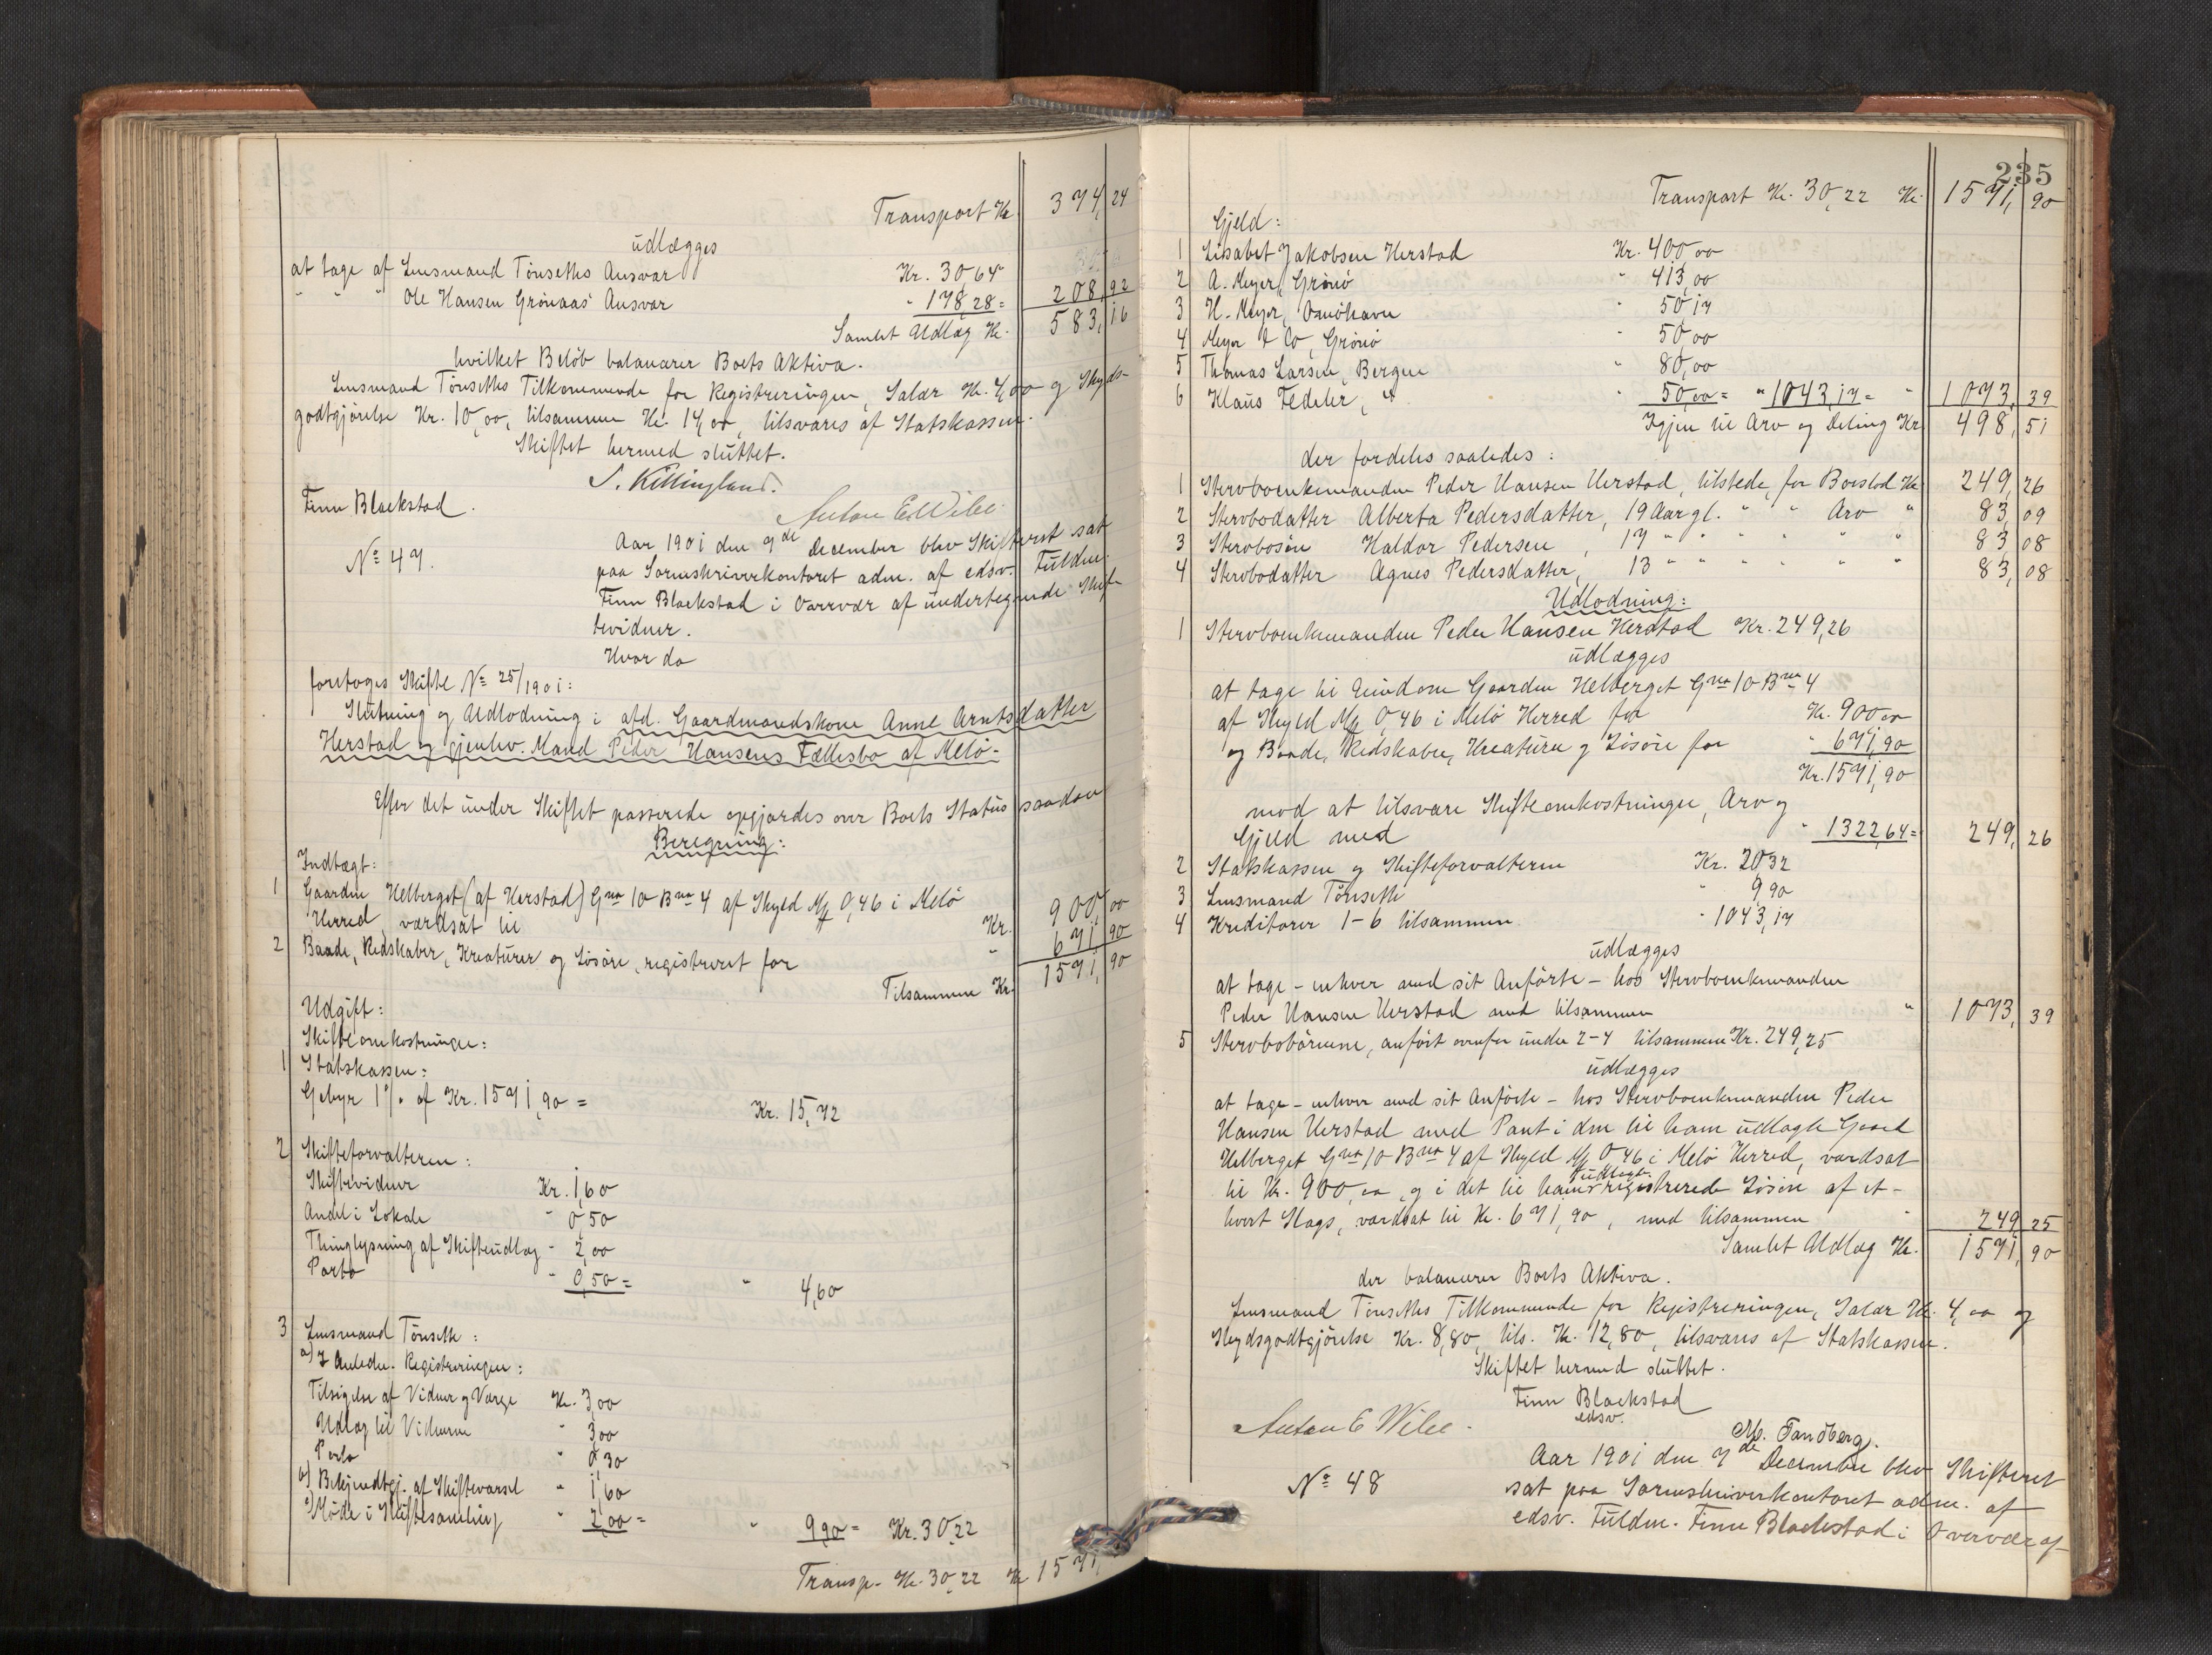 Transport Kr. 374,24
udlægges
at tage af Lensmand Tönseths Ansvar Kr. 30,64
" " " Ole Hansen Grönaas' Ansvar " 178,28 = 208,92
Samlet Udlæg Kr. 583,16
hvilket Belöb balancerer Boets Aktiva.
Lensmand Tönseths Tilkommende for Registreringen, Salær Kr. 4,00 og Skyds-
godtgjörelse Kr. 10,00, tilsammen Kr. 14,00, tilsvares af Statskassen.
Skiftet hermed sluttet.
S. Killingland.
Finn Blackstad.
Anton E. Wibe
No 47.
Aar 1901 den 7de December blev Skifteret sat
paa Sorenskriverkontoret adm. af edsv. Fuldm.
Finn Blackstad i Overvær af undertegnede Skif-
tevidner.
Hvor da
foretoges Skifte No 25/1901:
Slutning og Udlodning i afd. Gaardmandskone Anne Arntsdatter
Herstad og gjenlev. Mand Peder Hansens Fællesbo af Melö.
Efter det under Skiftet passerede opgjordes over Boets Status saadan
Beregning:
Indtægt:
1 Gaarden Helberget (af Herstad) Gno 10 Bno 4 af Skyld Mk 0,46 i Melö
Herred, værdsat til Kr. 900,00
2 Baade, Redskaber, Kreaturer og Lösöre, registreret for " 671,90
Tilsammen Kr. 1571,90
Udgift:
Skifteomkostninger:
1 Statskassen:
Gebyr 1% af Kr. 1571,90 = Kr. 15,72
2 Skifteforvalteren:
Skiftevidner Kr. 1,60
Andel i Lokale " 0,50
Thinglysning af Skifteudlæg " 2,00
Porto " 0,50 = " 4,60
3 Lensmand Tönseth:
a) I Anledn. Registreringen:
Tilsigelse af Vidner og Værge Kr. 3,00
Udlæg til Vidnerne " 3,00
Porto " 0,30
b) Bekjendtgj. af Skiftevarsel " 1,60
c) Möde i Skiftesamling " 2,00 = " 9,90 = Kr. 30,22
Transp. Kr. 30,22 Kr. 1571,
235
Transport Kr. 30,22 Kr. 1571,90
Gjeld:
1 Lisabet Jakobsen Herstad Kr. 400,00
2 A. Meyer, Grönö " 413,00
3 H. Meyer, Vaaghavn " 50,17
4 Meyer & Co, Grönö " 50,00
5 Thomas Larsen, Bergen " 80,00
6 Klaus Fedeler, " " 50,00 = " 1043,17 = " 1073,39
Igjen til Arv og Deling Kr. 498,51
der fordeles saaledes:
1 Stervboenkemanden Peder Hansen Herstad, tilstede, for Boeslod Kr. 249,26
2 Stervbodatter Alberta Pedersdatter, 19 Aar gl. " " Arv " 83,09
3 Stervbosön Haldor Pedersen, 17 " " " " " " 83,08
4 Stervbodatter Agnes Pedersdatter, 13 " " " " " " 83,08
Udlodning:
1 Stervboenkemanden Peder Hansen Herstad Kr. 249,26
udlægges
at tage til Eiendom Gaarden Helberget Gno 10 Bno 4
af Skyld Mk 0,46 i Melö Herred for Kr. 900,00
og Baade, Redskaber, Kreaturer og Lösöre for " 671,90
Kr. 1571,90
mod at tilsvare Skifteomkostninger, Arv og
Gjeld med " 1322,64 = 249,26
2 Statskassen og Skifteforvalteren Kr. 20,32
3 Lensmand Tönseth " 9,90
4 Kreditorer 1-6 tilsammen " 1043,17
udlægges
at tage - enhver med sit Anförte - hos Stervboenkemanden
Peder Hansen Herstad med tilsammen " 1073,39
5 Stervbobörnene, anfört ovenfor under 2-4 tilsammen Kr. 249,25
udlægges
at tage - enhver med sit Anförte - hos Stervboenkemanden Peder
Hansen Herstad med Pant i den til ham udlagte Gaard
Helberget Gno 10 Bno 4 af Skyld Mk 0,46 i Melö Herred, værdsat
til Kr. 900,00, og i det til ham udlagte registrerede Lösöre af et-
hvert Slags, værdsat til Kr. 671,90, med tilsammen " 249,25
Samlet Udlæg Kr. 1571,90
der balancerer Boets Aktiva.
Lensmand Tönseths Tilkommende for Registreringen, Salær Kr. 4,00 og
Skydsgodtgjörelse Kr. 8,80, tils. Kr. 12,80, tilsvares af Statskassen.
Skiftet hermed sluttet.
Finn Blackstad
edsv.
Anton E Wibe.
M. Sandberg.
No 48
Aar 1901 den 7de December blev Skifteret
sat paa Sorenskriverkontoret adm. af
edsv. Fuldm. Finn Blackstad i Overvær af